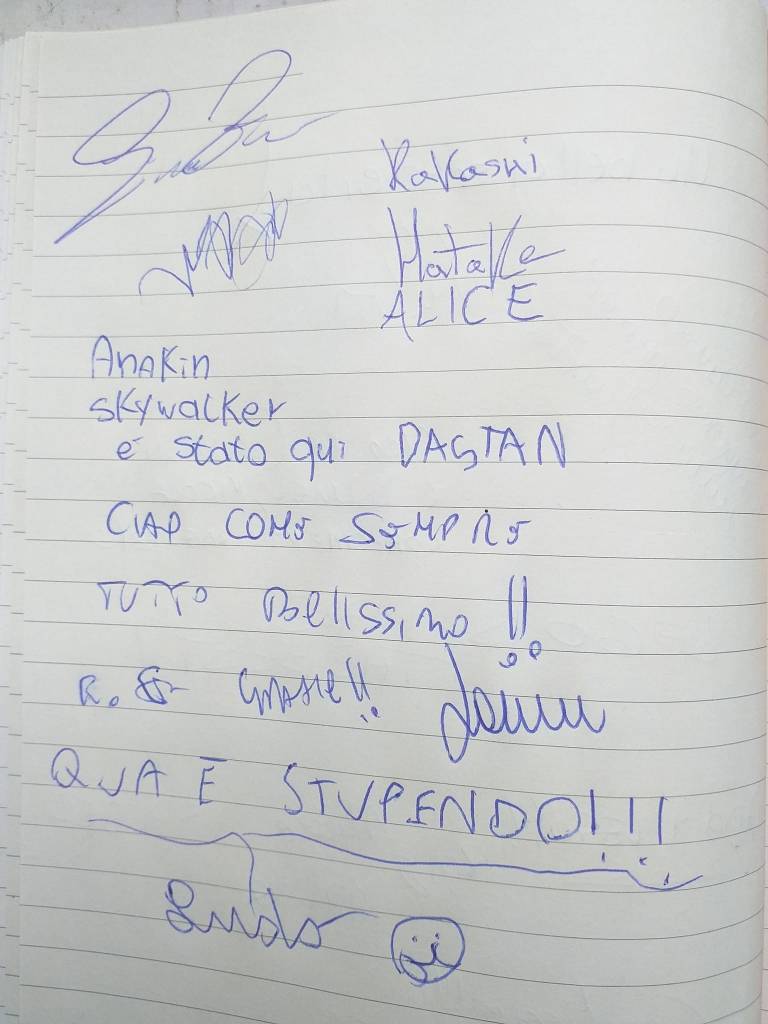 Kakashi
Hatake
ALICE
Anakin
skywalker
è stato qui DASTAN
CIAO COME SEMPRE
TUTTO Bellissimo !!
R. GRAZIE!!
QUA E STUPENDO!!!
Ludo